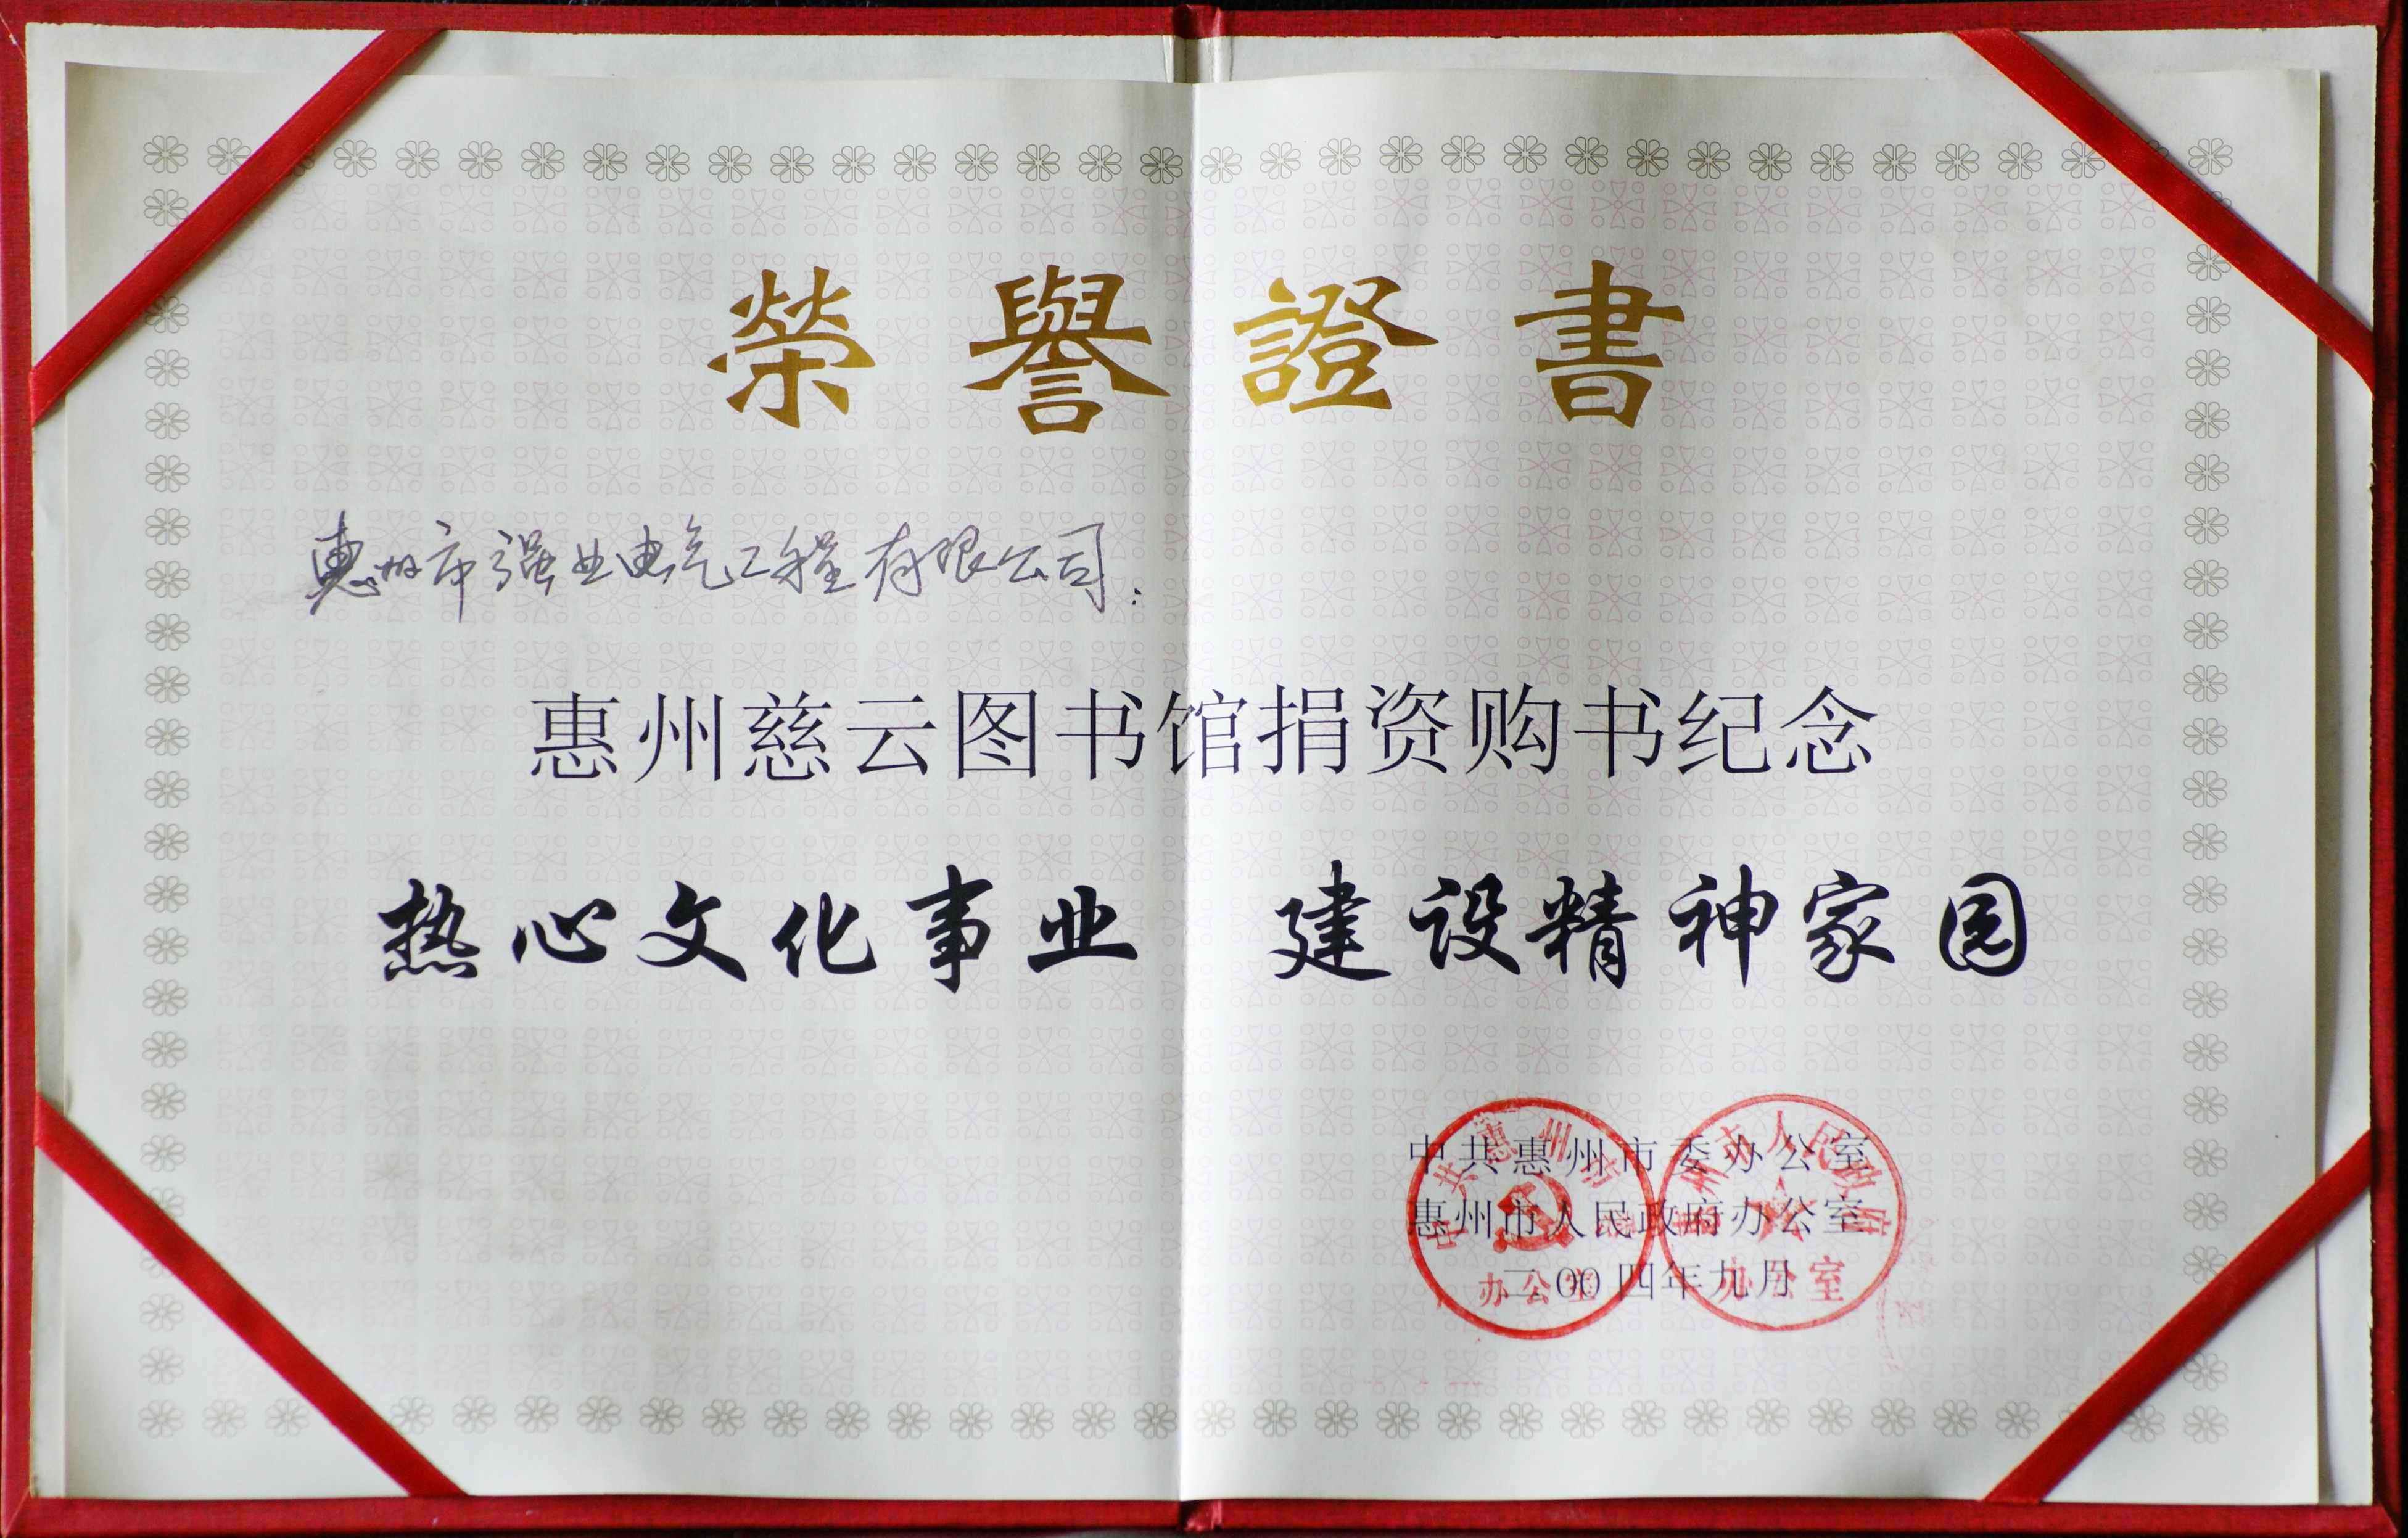 榮譽證書
惠州市强业电气工程有限公司：
惠州慈云图书馆捐资购书纪念
热心文化事业 建设精神家园
中共惠州市委办公室
惠州市人民政府办公室
二00四年九月
中共惠州市
办公室
惠州市人民政府
办公室